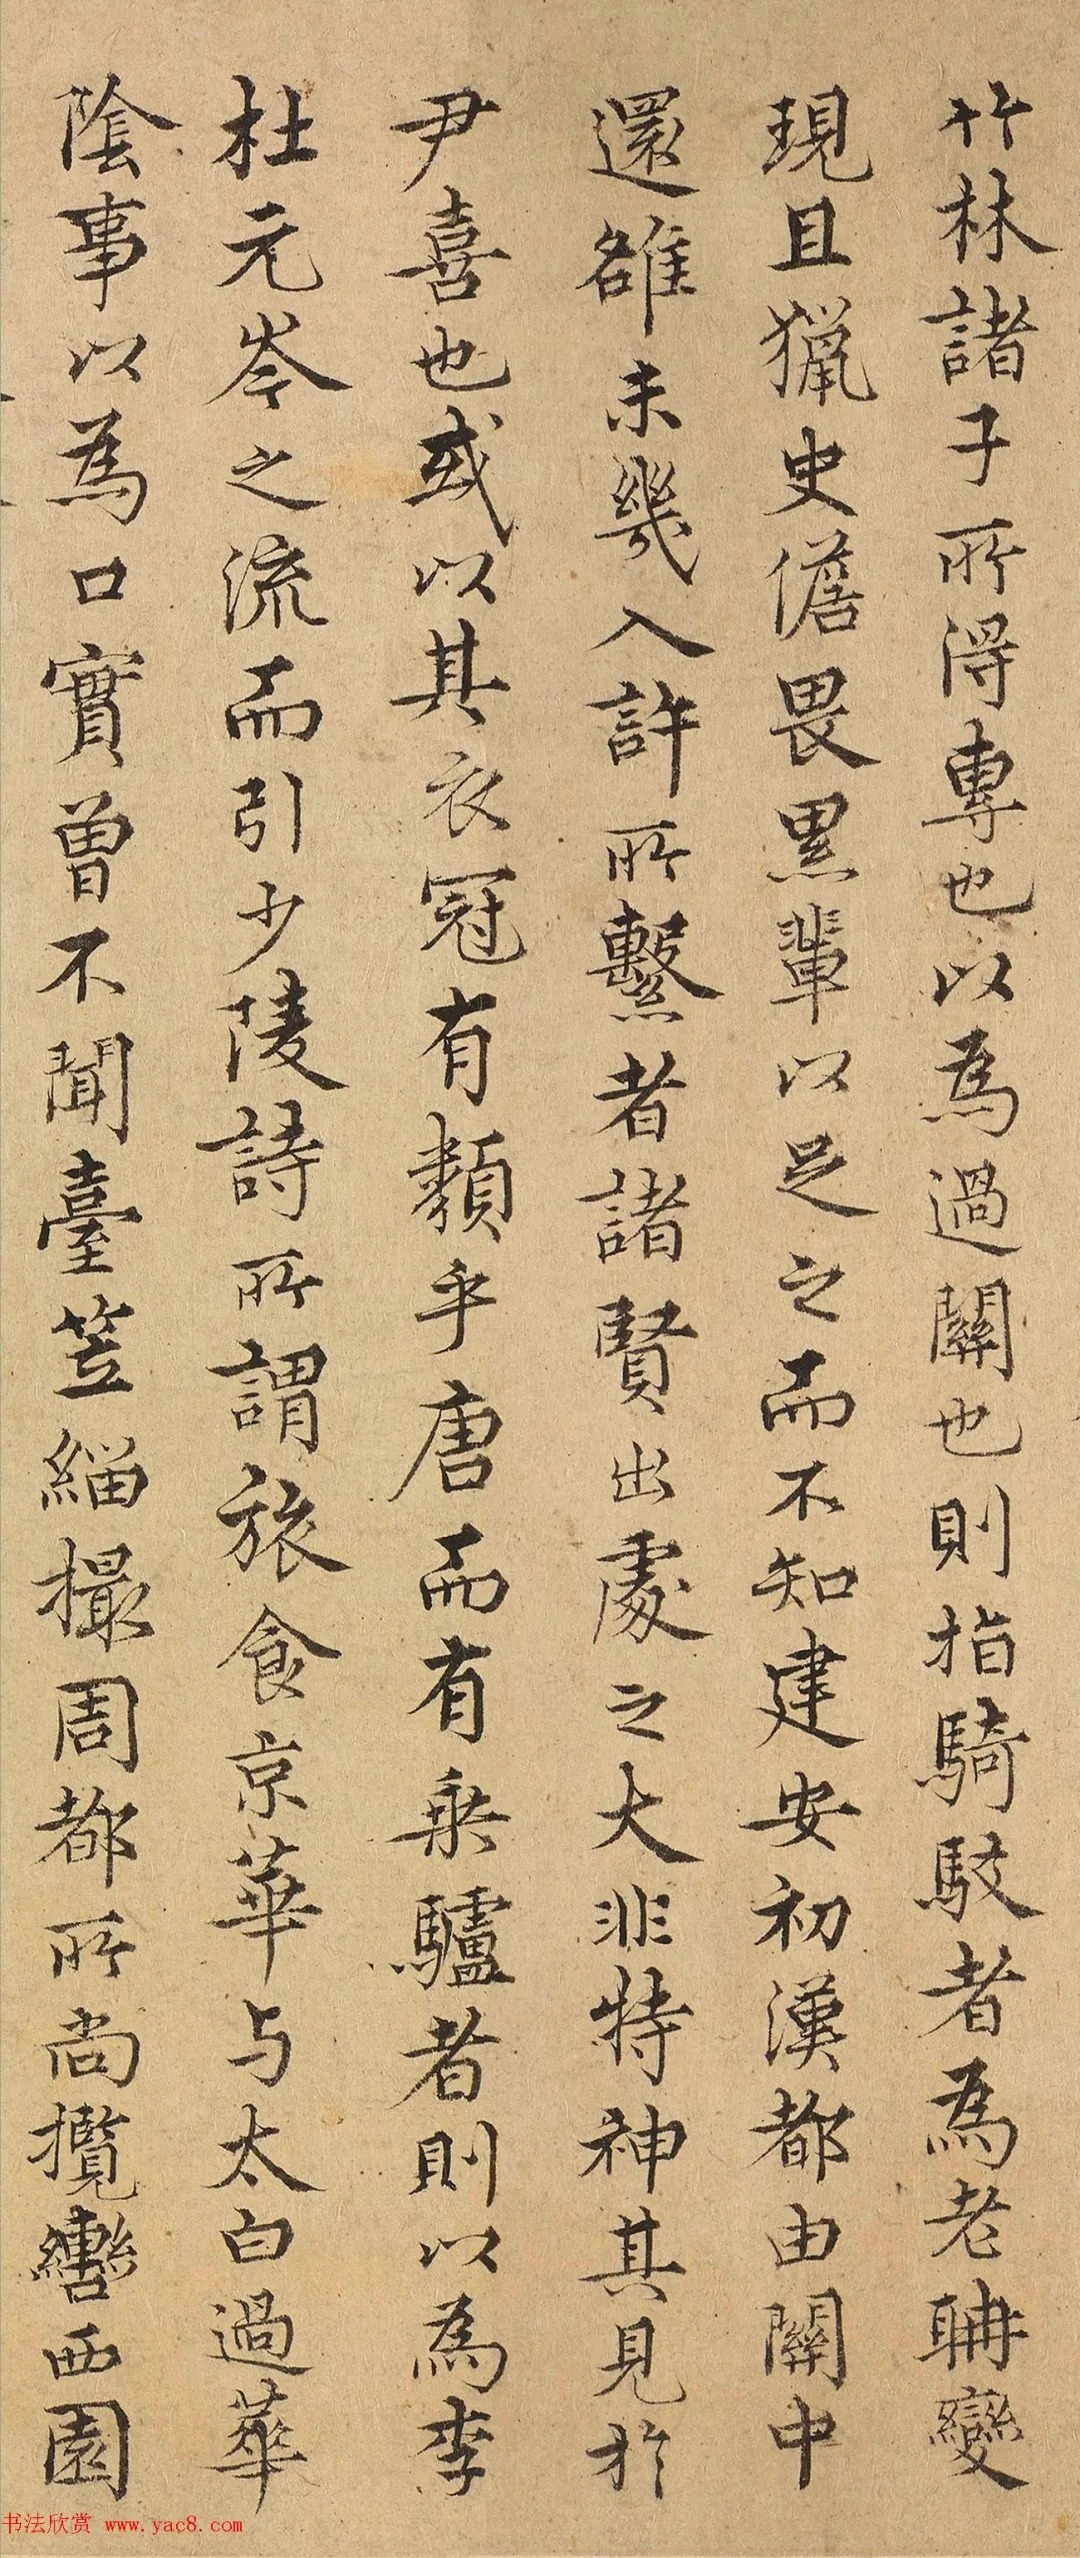 竹林諸子所得專也以為過關也則指騎駁者為老聃變
現且獵史儋畏黑輩以足之而不知建安初漢都由關中
還雒未幾入許所繫者諸賢出處之大非特神其見於
尹喜也或以其衣冠有類乎唐而有乘驢者則以為李
杜元岑之流而引少陵詩所謂旅食京華与太白過華
陰事以為口實曾不聞臺笠緇撮周都所尚攬轡西園
书法欣赏 www.yac8.com